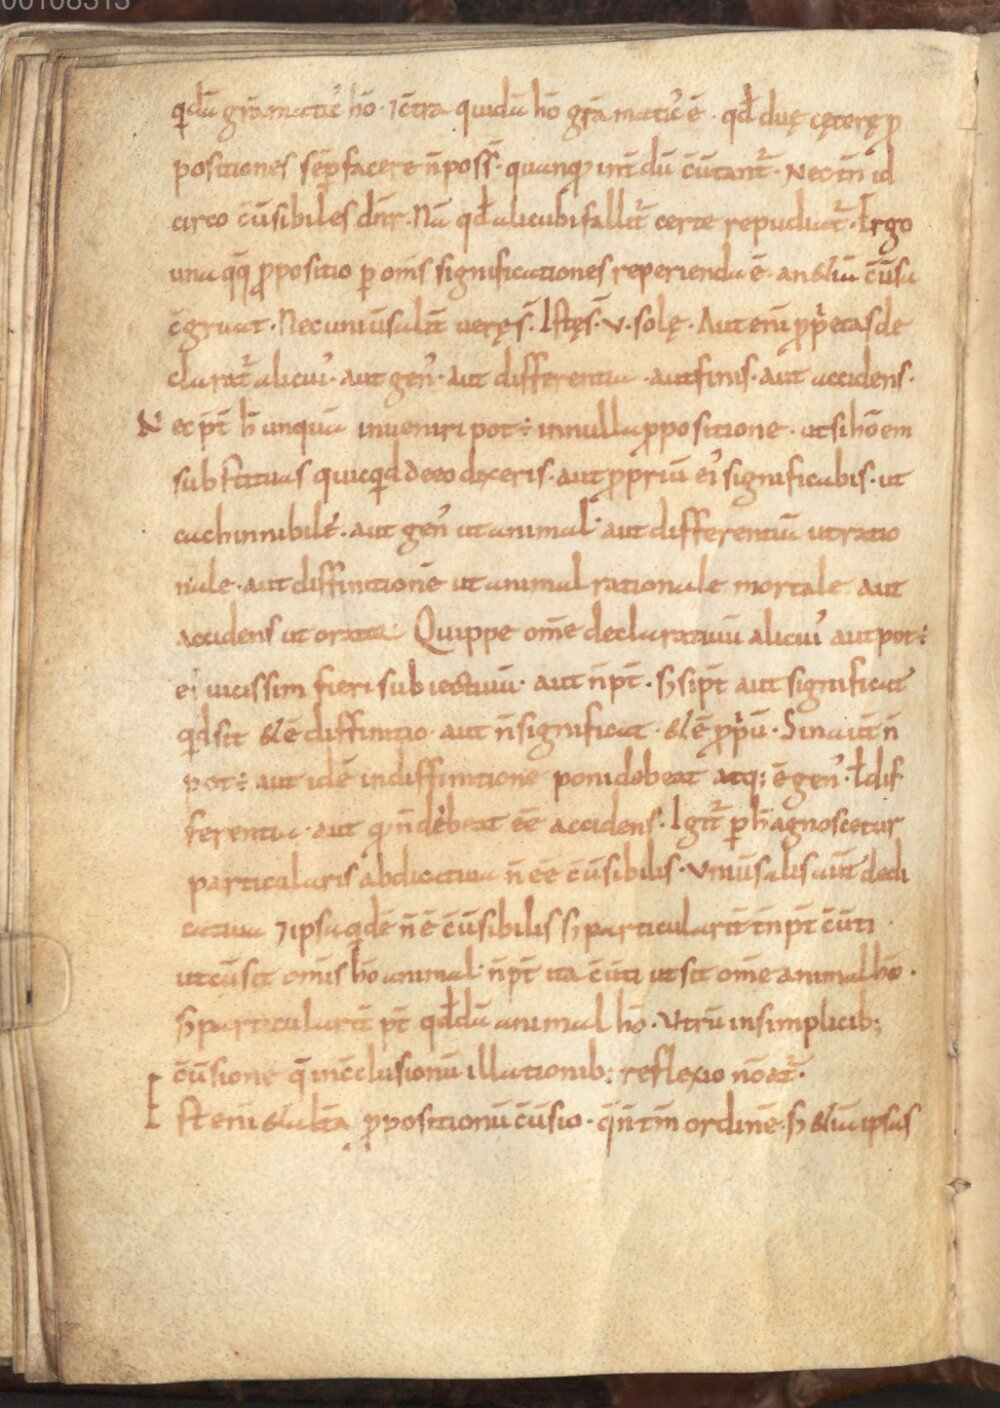 00108313
qdā grāmatic᾽ hō · ⁊ c̄tra quidā hō grāmatic᾽ ē · qđ duę cęterę ꝓ
positiones sēp facere n̄ poss̄ · quanq̄ int̄dū c̄ūtant᷑ · Nec tn̄ id
circo c̄ūsibiles dn̄r · Nā qđ alicubi fallit᷑ certe repudiat᷑ · Ergo
una q̄q̄ ꝓpositio ꝑ om̄s significationes reperienda ē · an &iā c̄ūsa
c̄gruat · Nec uniūsalit̄ uerę s̄ · Istę s̄ · v · solę · Aut enī ꝓprietas de
clarat᷑ alicui᾽ · aut gen᾽ · aut differentia · aut finis · aut accidens ·
Nec pt̄ h̄ unquā inueniri pot÷ in nulla ꝓpositione · ut si hōem
substituas quicqd de eo dixeris · aut ꝓpriū ei᾽ significabis · ut
cachinnibile · aut gen᾽ ut animal · aut differentiā ut ratio
nale · aut diffinitionē ut animal rationale mortale aut
accidens ut orator Quippe om̄e declaratiuū alicui᾽ aut pot÷
ei uicissim fieri subiectiuū · aut n̄ pt̄ · s; si pt̄ aut significat
qd sit & ē diffinitio · aut n̄ significat · & ē ꝓpiū · Sin aūt n̄
pot÷ aut idē in diffinitione poni debeat atq; ē gen᾽ · ł dif
ferentia · aut q n̄ debeat ēē accidens · Igit᷑ ꝑ h̄ agnoscetur
particularis abdicatiua n̄ ēē c̄ūsibilis · Uniūsalis aūt dedi
catiua ⁊ ipsa qdē n̄ ē c̄ūsibilis s; particularit̄ tn̄ pt̄ c̄ūti
ut cū sit om̄is hō animal · n̄ pt̄ ita c̄ūti ut sit om̄e animal hō ·
s; particularit̄ pt̄ qđdā animal hō · Utrū in simplicib;
c̄ūsione q̄ in c̄clusionū illationib; reflexio noat᷑ ·
Ē st enī & alt̄a ꝓpositionū c̄ūsio · q̄ n̄ tm̄ ordinē · s; &iā ipsas